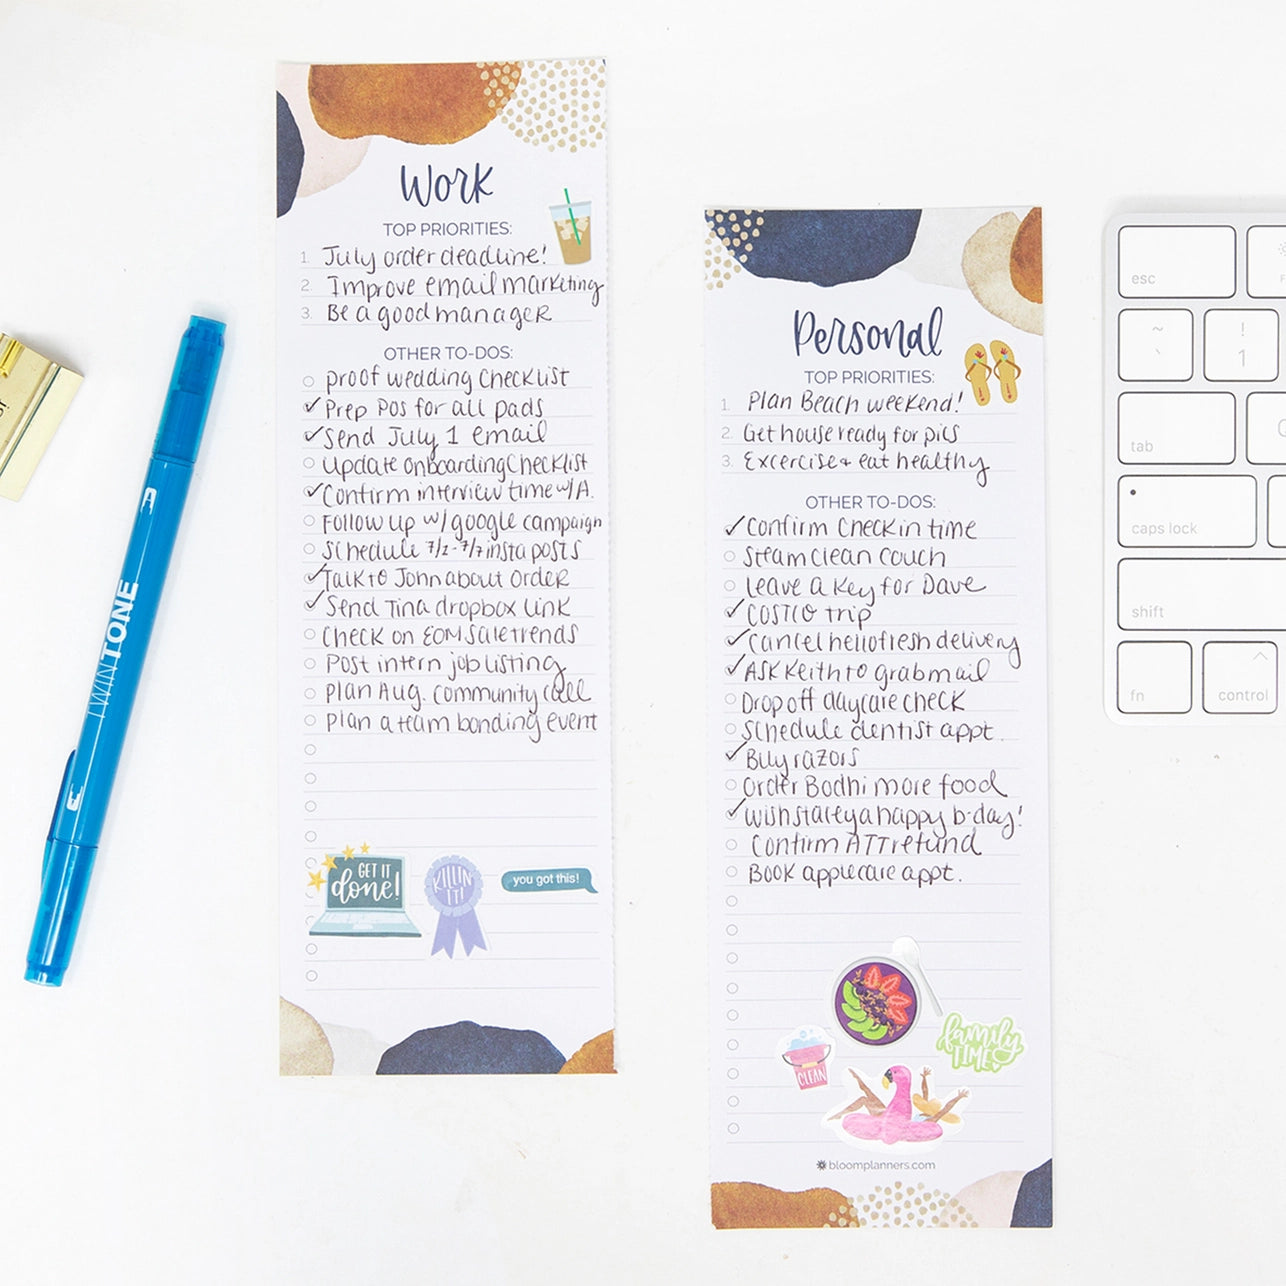 Work
TOP PRIORITIES:
1. July order deadline!
2. Improve email marketing
3. Be a good manager
OTHER TO-DOS:
proof wedding checklist
Prep POs for all pads
Send July 1 email
update onboarding checklist
Confirm interview time w/A.
Follow up w/ google campaign
Schedule 7/1-7/7 insta posts
Talk to John about order
Send Tina dropbox link
Check on EOM sale trends
Post intern job listing
Plan Aug. community call
plan a team bonding event
GET IT
done!
KILLIN
IT!
you got this!
Personal
TOP PRIORITIES:
1. Plan Beach weekend!
2. Get house ready for pics
3. Excercise + eat healthy
OTHER TO-DOS:
Confirm check in time
Steam clean couch
Leave a key for Dave
COSTCO trip
Cancel hellofresh delivery
ASK Keith to grab mail
Drop off daycare check
Schedule dentist appt.
Buy razors
Order Bodhi more food
Wish Staley a happy b-day!
Confirm ATT refund
Book applecare appt.
family
TIME
CLEAN
bloomplanners.com
TWINTONE
esc
~
`
!
1
tab
caps lock
shift
fn
control